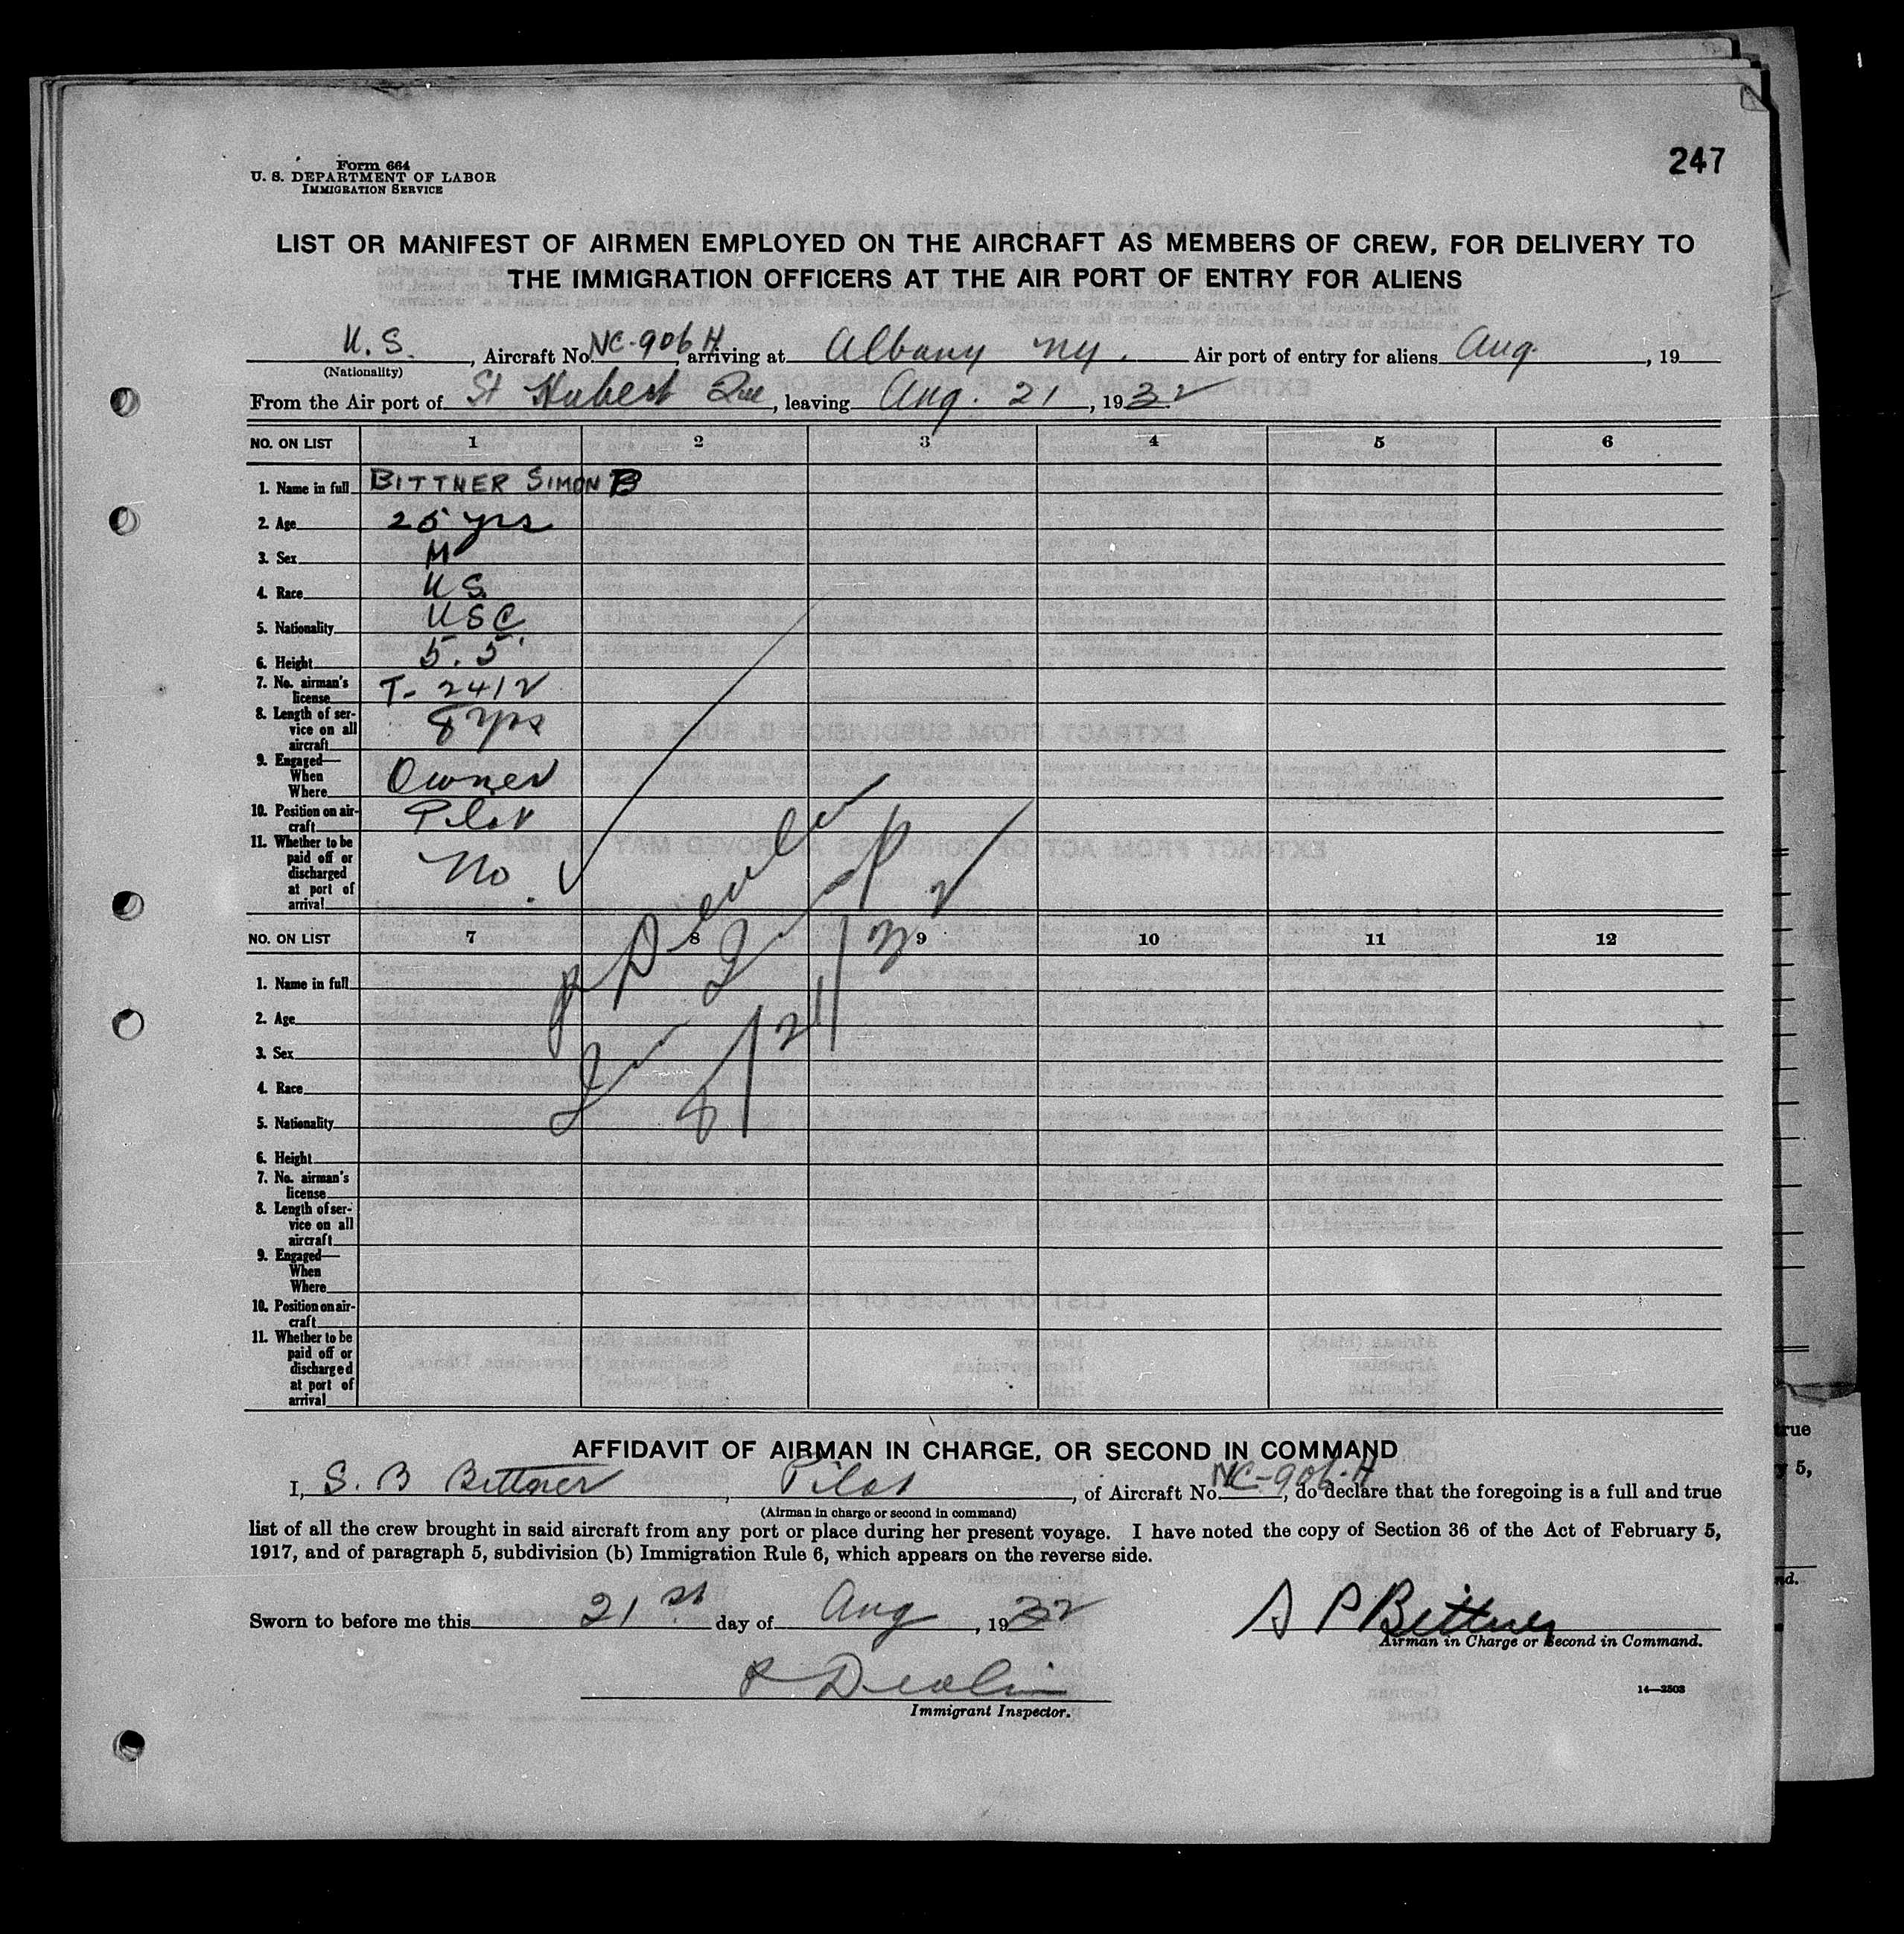 247
Form 664
U. S. DEPARTMENT OF LABOR
IMMIGRATION SERVICE
LIST OR MANIFEST OF AIRMEN EMPLOYED ON THE AIRCRAFT AS MEMBERS OF CREW, FOR DELIVERY TO
THE IMMIGRATION OFFICERS AT THE AIR PORT OF ENTRY FOR ALIENS
U. S. , Aircraft No. NC-906H arriving at Albany NY. Air port of entry for aliens Aug. , 19
(Nationality)
From the Air port of St Hubert Que , leaving Aug. 21 , 1932
NO. ON LIST 1 2 3 4 5 6
1. Name in full BITTNER SIMON B
2. Age 25 yrs
3. Sex M
4. Race U S.
5. Nationality U S C
6. Height 5. 5'
7. No. airman's
license T- 2412
8. Length of ser-
vice on all
aircraft 8 yrs
9. Engaged—
When
Where Owner
10. Position on air-
craft Pilot
11. Whether to be
paid off or
discharged
at port of
arrival No.
NO. ON LIST 7 8 9 10 11 12
1. Name in full
2. Age
3. Sex
4. Race
5. Nationality
6. Height
7. No. airman's
license
8. Length of ser-
vice on all
aircraft
9. Engaged—
When
Where
10. Position on air-
craft
11. Whether to be
paid off or
discharged
at port of
arrival
8/21/32
AFFIDAVIT OF AIRMAN IN CHARGE, OR SECOND IN COMMAND
I, S. B Bittner , Pilot , of Aircraft No. NC-906-H , do declare that the foregoing is a full and true
(Airman in charge or second in command)
list of all the crew brought in said aircraft from any port or place during her present voyage. I have noted the copy of Section 36 of the Act of February 5,
1917, and of paragraph 5, subdivision (b) Immigration Rule 6, which appears on the reverse side.
Sworn to before me this 21st day of Aug , 1932
Bittner
Airman in Charge or Second in Command.
Devlin
Immigrant Inspector.
14—2503